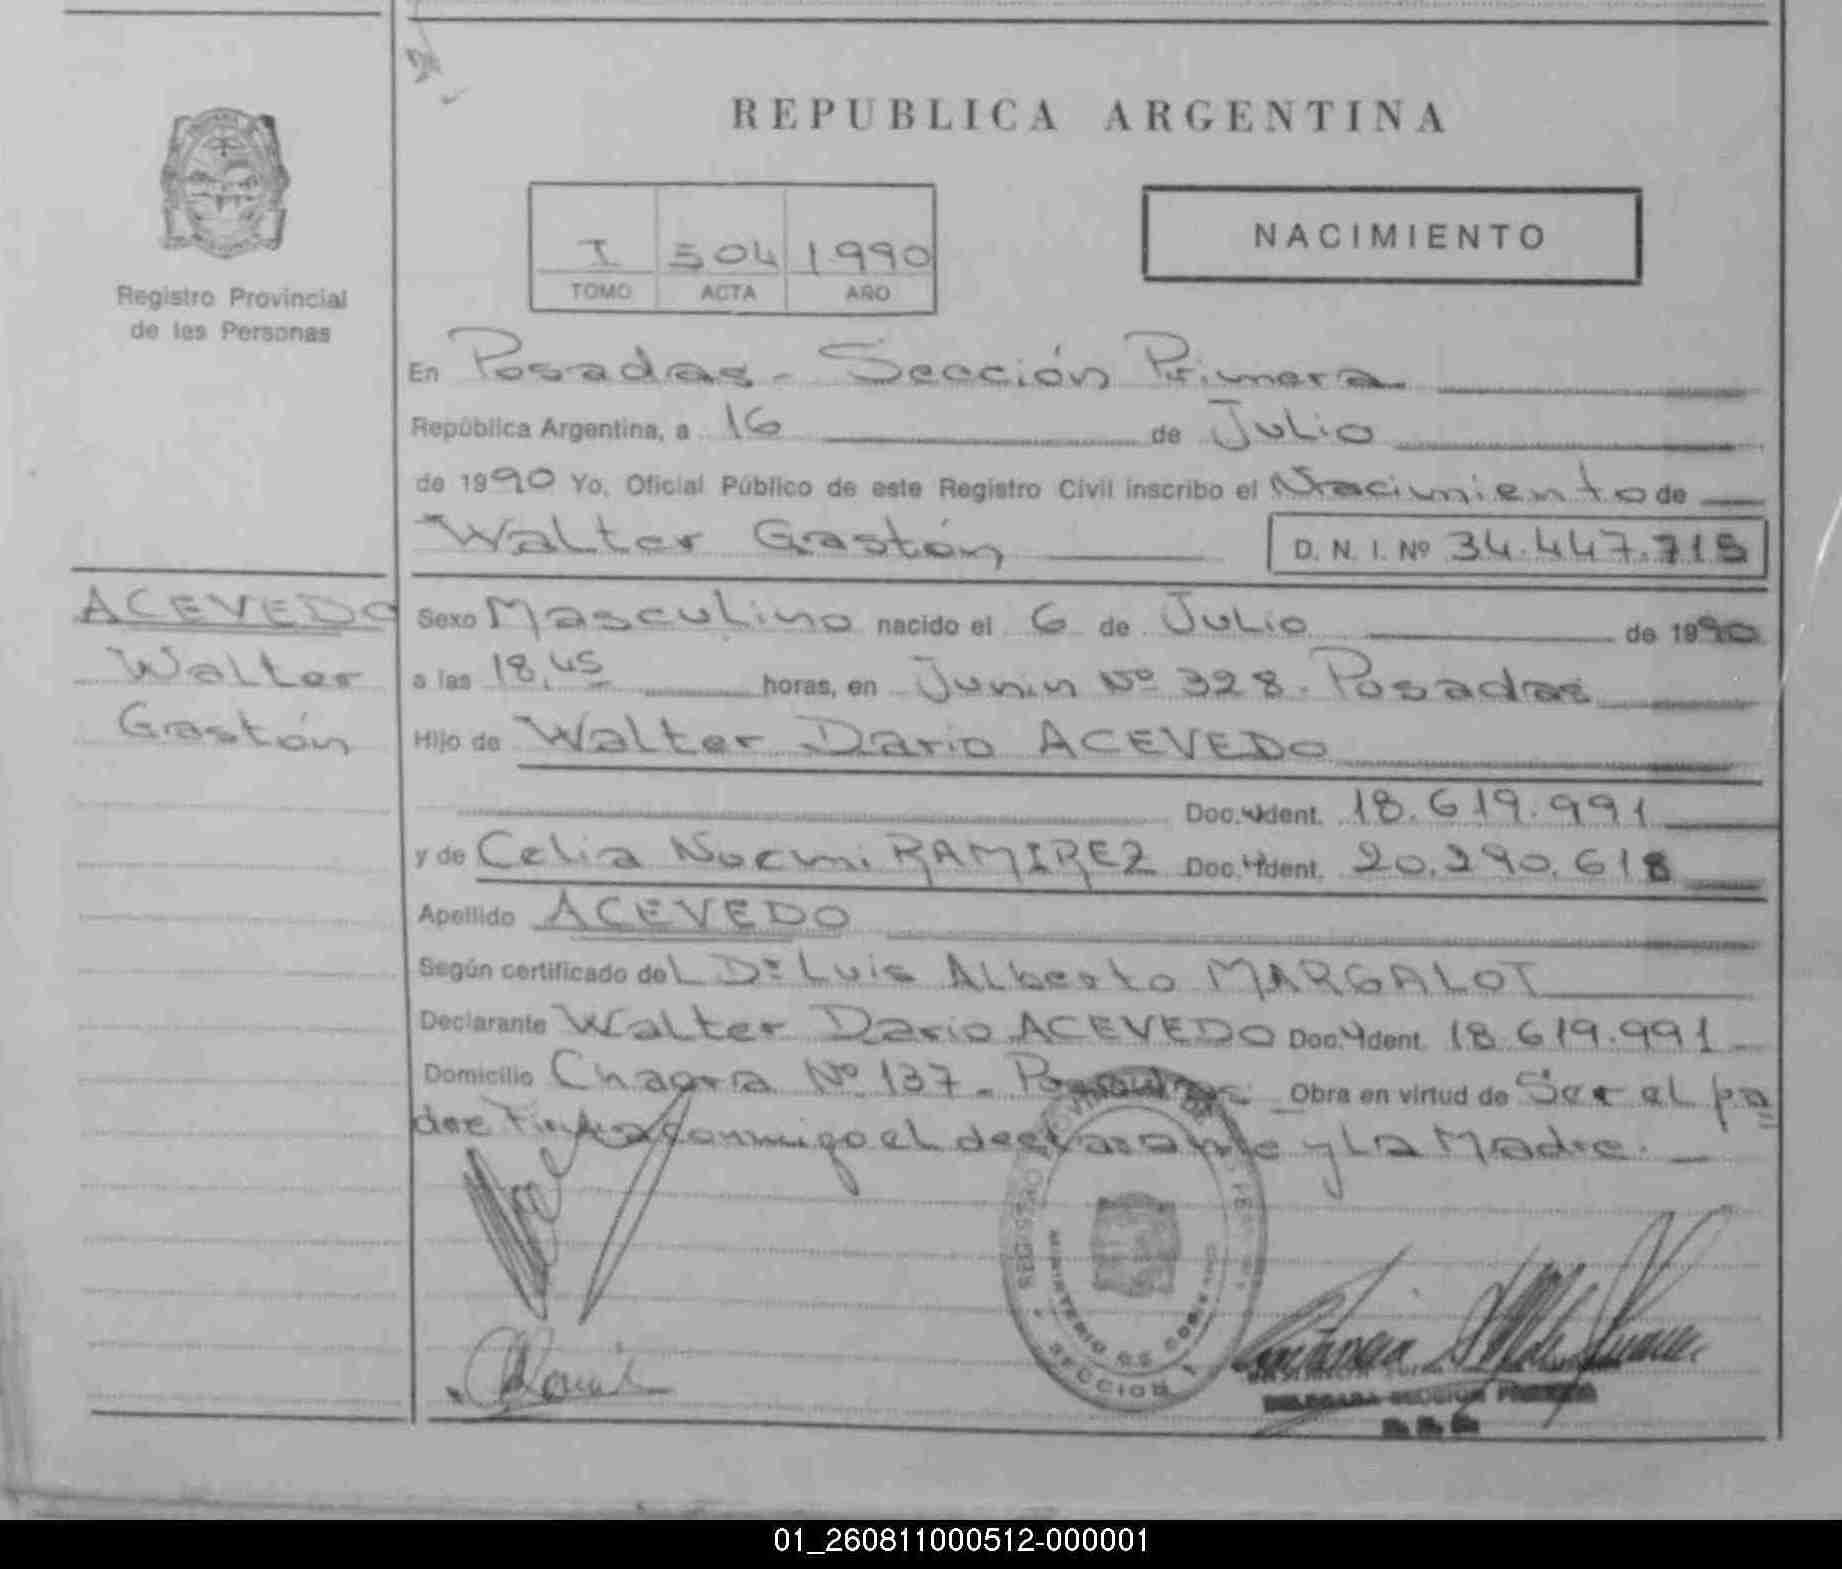 REPUBLICA ARGENTINA
NACIMIENTO
I 504 1990
TOMO ACTA AÑO
Registro Provincial
de las Personas
En Posadas - Sección Primera
República Argentina, a 16 de Julio
de 1990 Yo, Oficial Público de este Registro Civil inscribo el Nacimiento de
Walter Gastón D. N. I. Nº 34.447.715
ACEVEDO
Walter
Gastón
Sexo Masculino nacido el 6 de Julio de 1990
a las 18,45 horas, en Junin Nº 328. Posadas
Hijo de Walter Dario ACEVEDO
Doc. Ident. 18.619.991
y de Celia Noemi RAMIREZ Doc. Ident. 20.290.618
Apellido ACEVEDO
Según certificado del Dr Luis Alberto MARGALOT
Declarante Walter Dario ACEVEDO Doc. Ident. 18.619.991
Domicilio Chacra Nº 137 - Posadas. Obra en virtud de Ser el pa
dre Firma conmigo el declarante y La Madre.
MINISTERIO DE GOBIERNO
SECCION 1
DELEGADA SECCION PRIMERA
01_260811000512-000001